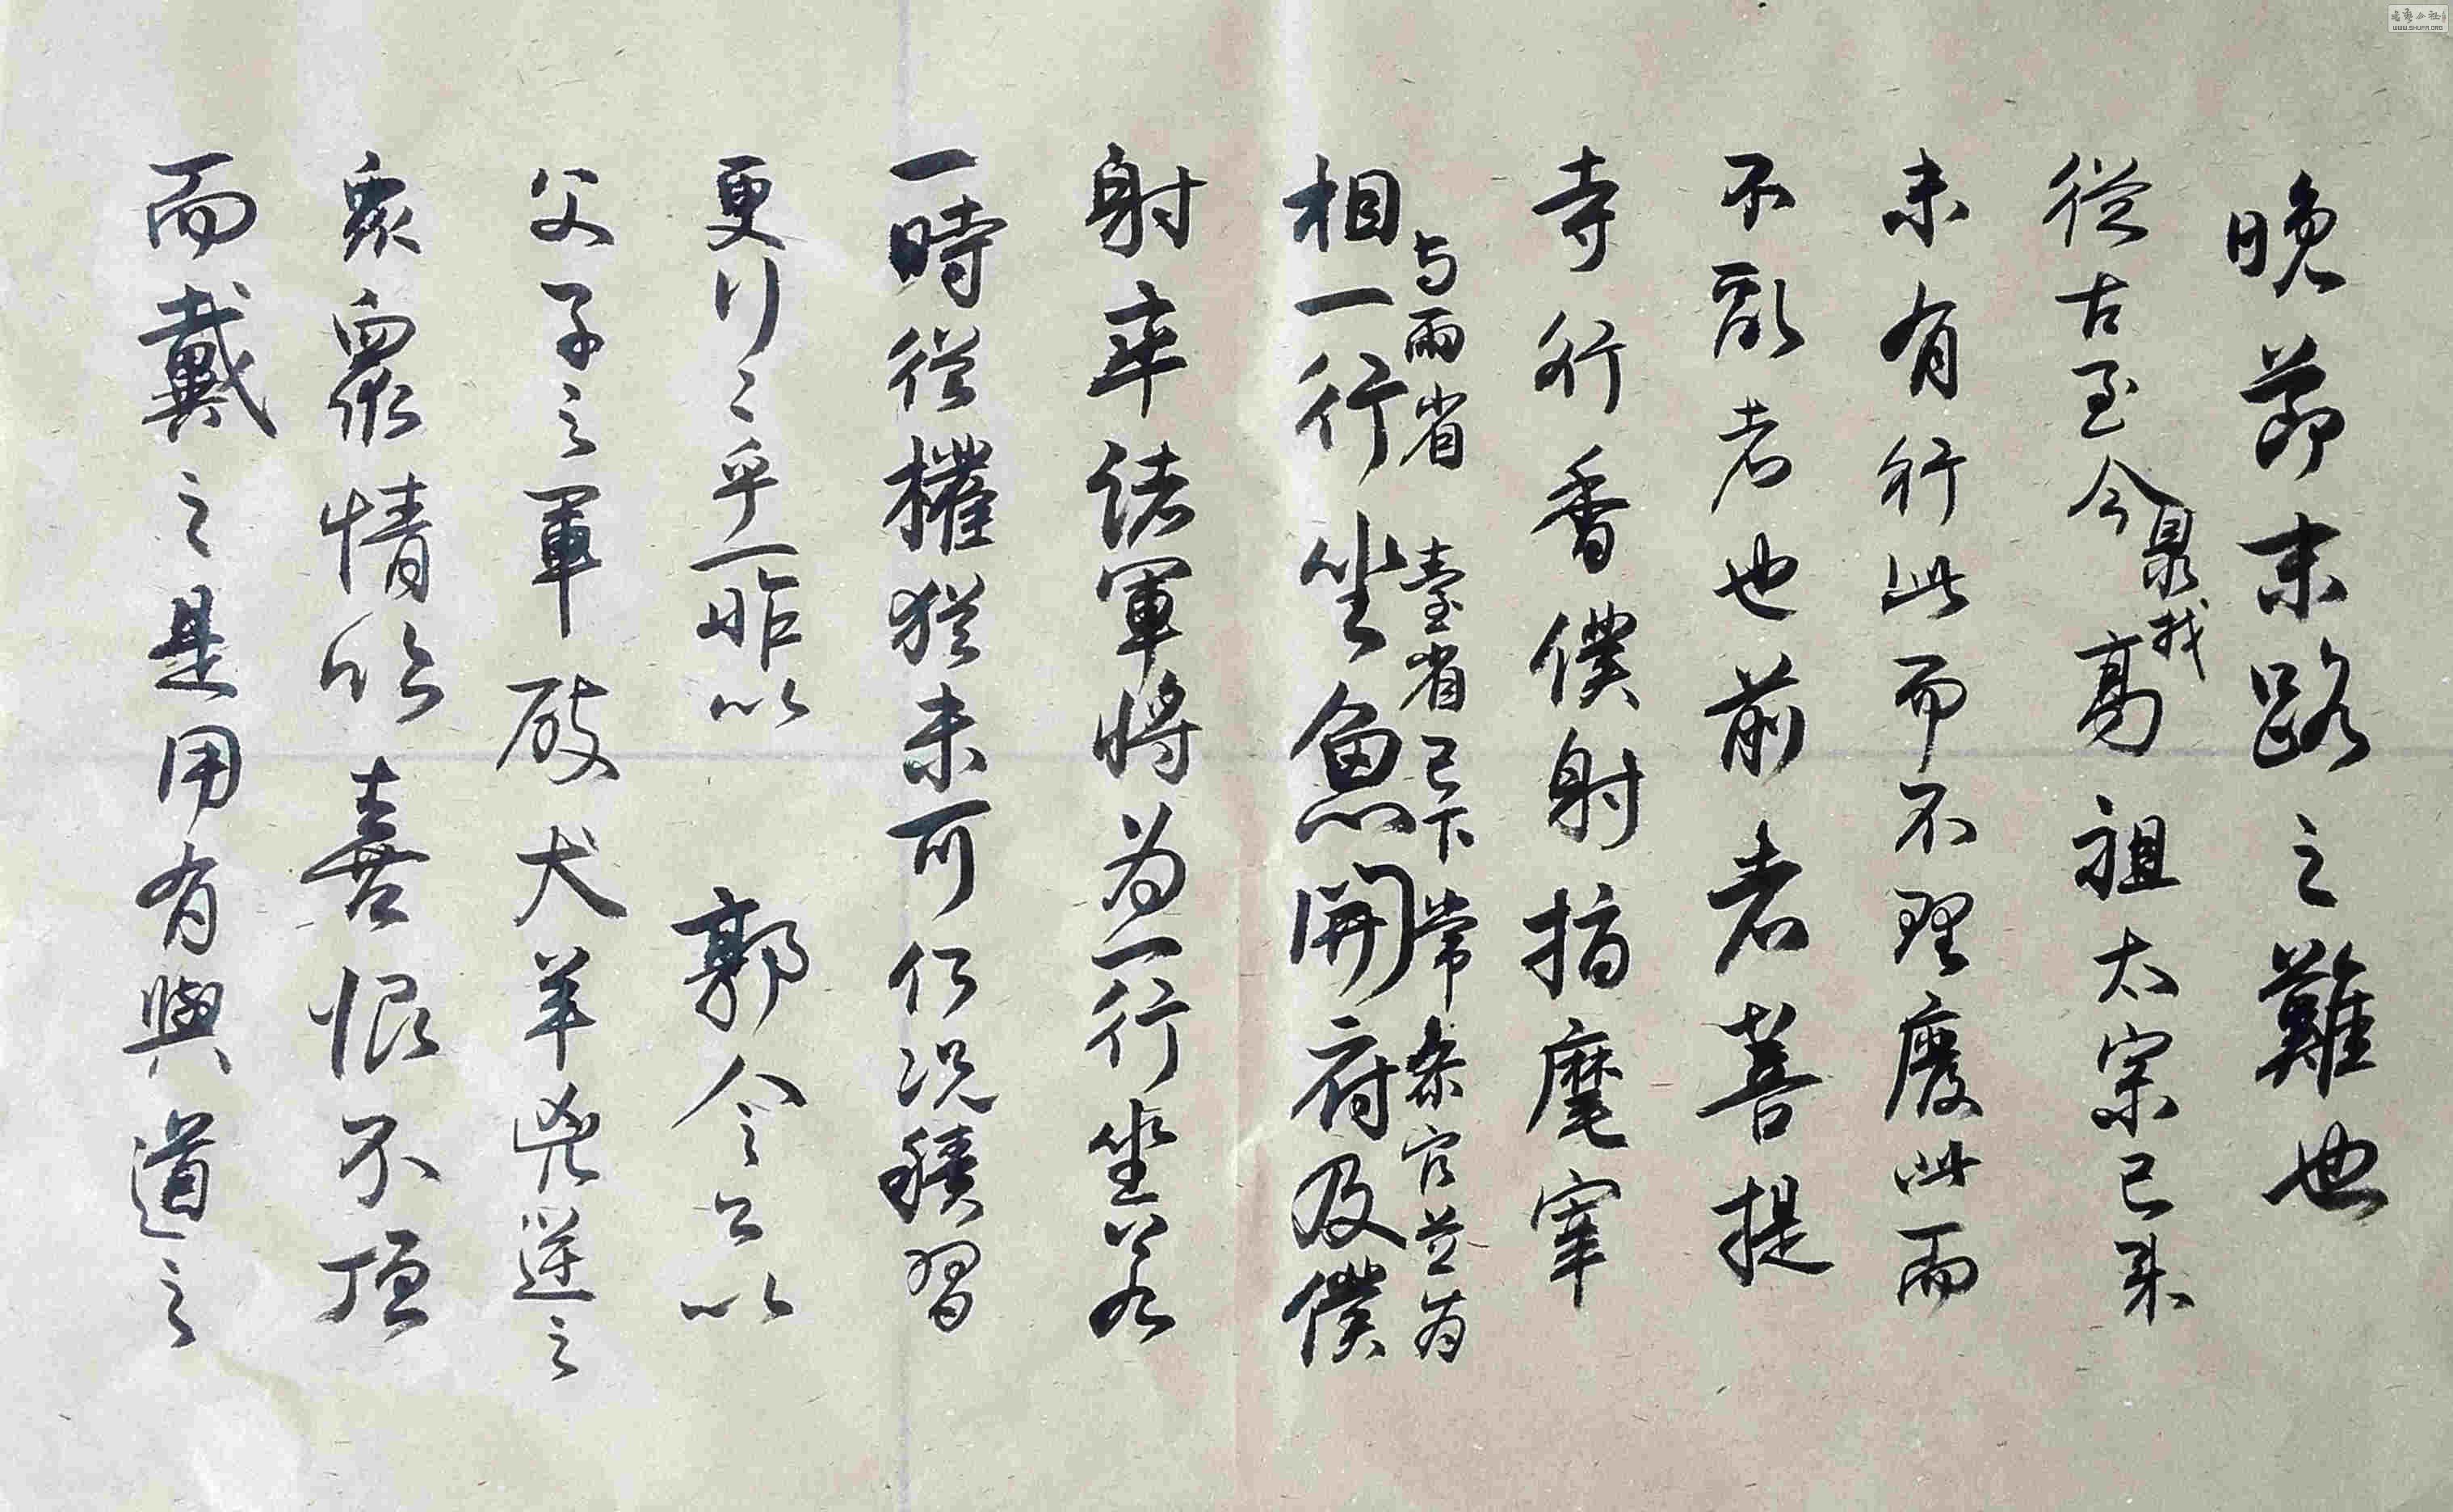 晚節末路之難也
從古至今泉我高祖太宗已來
未有行此而不理廢此而
不亂者也前者菩提
寺行香僕射指麾宰
相與兩省臺省已下常參官並為
一行坐魚開府及僕
射率諸軍將為一行坐若
一時從權猶未可何況積習
更行之乎一昨以郭令公以
父子之軍破犬羊兇逆之
衆衆情欣喜恨不頂
而戴之是用有興道之
书法公社
WWW.SHUFA.ORG